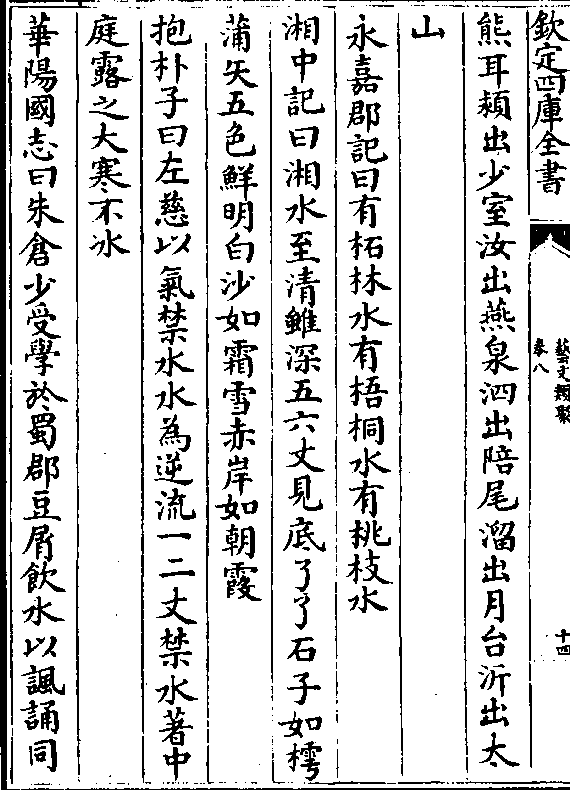 欽定四庫全書
藝文類聚
卷八
十四
熊耳熲出少室汝出燕泉泗出陪尾溜出月台沂出太
山
永嘉郡記曰有柘林水有梧桐水有挑枝水
湘中記曰湘水至清雖深五六丈見底了了石子如樗
蒲矢五色鮮明白沙如霜雪赤岸如朝霞
抱朴子曰左慈以氣禁水水為逆流一二丈禁水著中
庭露之大寒不冰
華陽國志曰朱倉少受學於蜀郡豆屑飲水以諷誦同